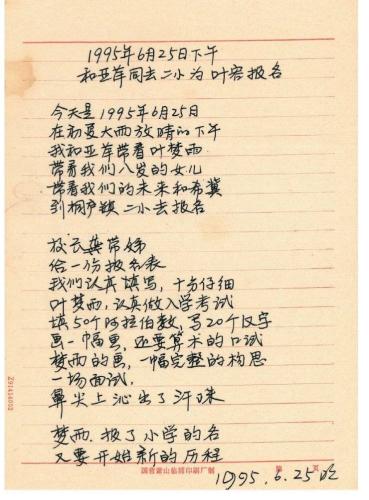 1995年6月25日下午
和亚军同去二小为叶容报名
今天是1995年6月25日
在初夏大雨放晴的下午
我和亚军带着叶梦雨
带着我们八岁的女儿
带着我们的未来和希冀
到桐庐镇二小去报名
给一份报名表
我们认真填写,十分仔细
叶梦雨,认真做入学考试
填50个阿拉伯数,写20个汉字
画一幅画,还要算术的口试
梦雨的画,一幅完整的构思
一场面试,
鼻尖上沁出了汗珠
梦雨,报了小学的名
又要开始新的历程
1995.6.25晚
国营萧山临浦印刷厂制
第 页
Z91414002